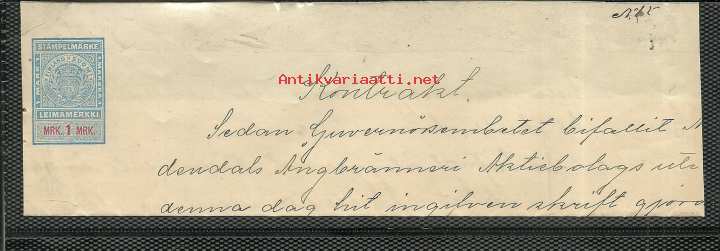 N:o 5
STÄMPELMÄRKE
LEIMAMERKKI
MRK. 1 MRK.
Antikvariaatti.net
Kontrakt.
Sedan Guvernörsembetet bifallit N
dendals Ångbränneri Aktiebolags uts
denna dag hit ingifven skrift gjord